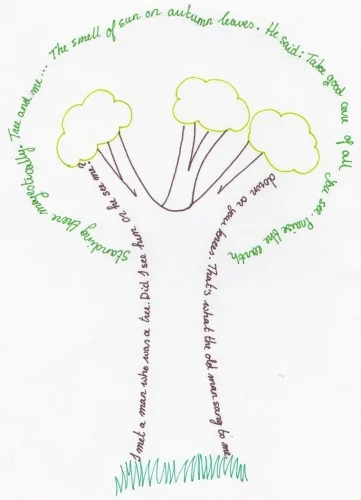 I met a man who was a tree. Did I see him or he see me?
Standing there majestically. Tree and me... The smell of sun on autumn leaves. He said: Take good care of all you see. Praise the earth
down on your knees. That's what the old man sang to me.